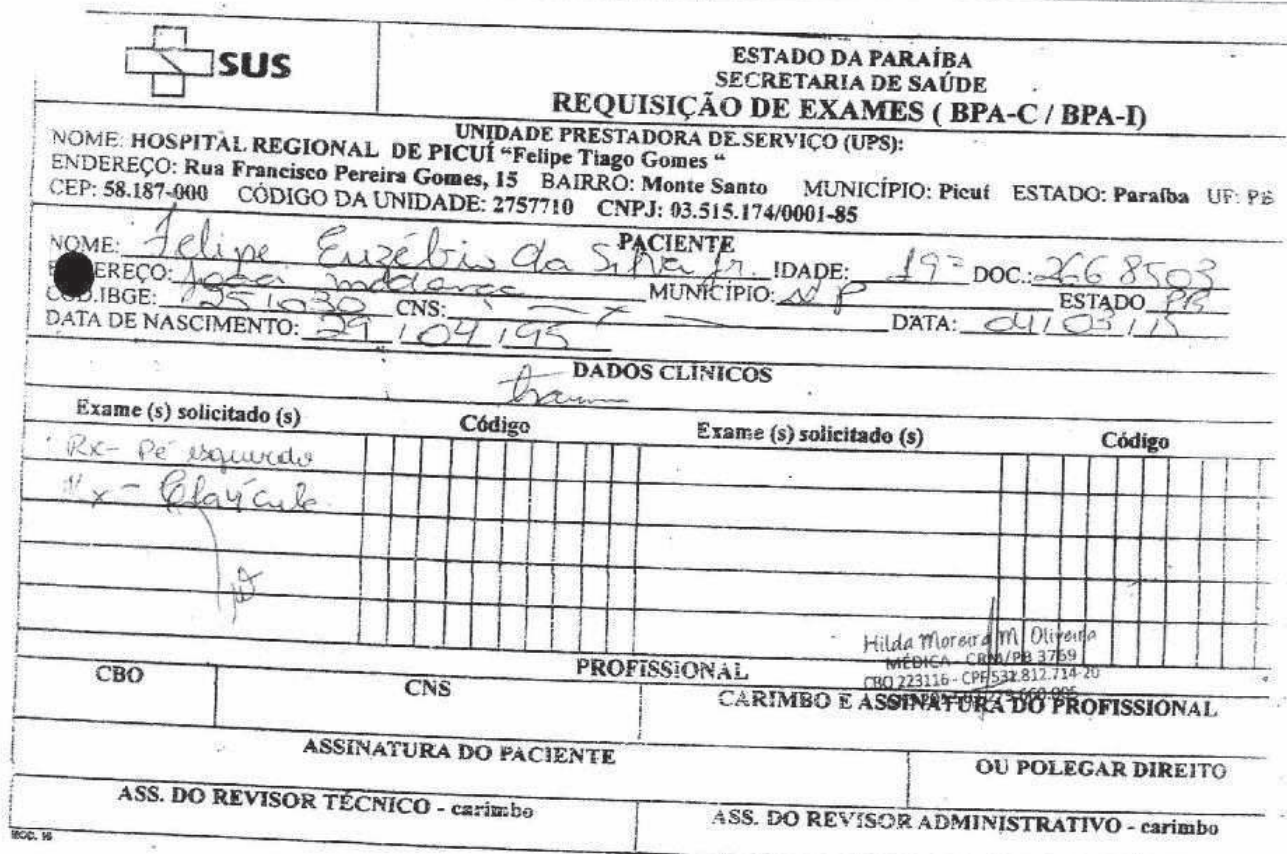 SUS
ESTADO DA PARAÍBA
SECRETARIA DE SAÚDE
REQUISIÇÃO DE EXAMES ( BPA-C / BPA-I)
UNIDADE PRESTADORA DE SERVIÇO (UPS):
NOME: HOSPITAL REGIONAL DE PICUÍ "Felipe Tiago Gomes "
ENDEREÇO: Rua Francisco Pereira Gomes, 15 BAIRRO: Monte Santo MUNICÍPIO: Picuí ESTADO: Paraíba UF: PB
CEP: 58.187-000 CÓDIGO DA UNIDADE: 2757710 CNPJ: 03.515.174/0001-85
PACIENTE
NOME: Felipe Euzébio da Silva Jr. IDADE: 19 DOC.: 2668503
EREÇO: MUNICÍPIO: ESTADO PB
COD.IBGE: 251030 CNS:
DATA DE NASCIMENTO: 29/04/95 DATA: 04/03/15
DADOS CLÍNICOS
Exame (s) solicitado (s) Código Exame (s) solicitado (s) Código
Rx- Pé esquerdo
Rx - Clavícula
Hilda Moreira M Oliveira
MÉDICA - CRM/PB 3769
CBO 223116 - CPF 532.812.714-20
PROFISSIONAL
CBO CNS CARIMBO E ASSINATURA DO PROFISSIONAL
ASSINATURA DO PACIENTE OU POLEGAR DIREITO
ASS. DO REVISOR TÉCNICO - carimbo ASS. DO REVISOR ADMINISTRATIVO - carimbo
MOD. 16